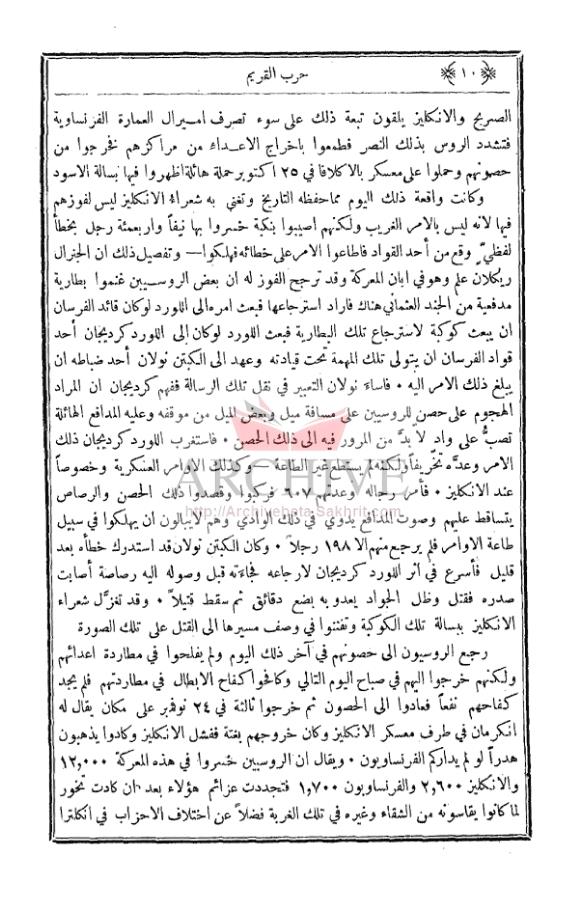 ﴿١٠﴾ حرب القريم
الصريح والانكليز يلقون تبعة ذلك على سوء تصرف اميرال العمارة الفرنساوية
فتشدد الروس بذلك النصر فطمعوا باخراج الاعداء من مراكزهم فخرجوا من
حصونهم وحملوا على معسكر بالاكلافا في ٢٥ اكتوبر حملة هائلة اظهروا فيها بسالة الاسود
وكانت واقعة ذلك اليوم مما حفظه التاريخ وتغنى به شعراء الانكليز ليس لفوزهم
فيها لانه ليس بالامر الغريب ولكنهم اصيبوا بنكبة خسروا بها نيفاً واربعمئة رجل بخطأ
لفظيّ وقع من أحد القواد فاطاعوا الامر على خطائه فهلكوا — وتفصيل ذلك ان الجنرال
ريكلان علم وهو في ابان المعركة وقد ترجح الفوز له ان بعض الروسيين غنموا بطارية
مدفعية من الجند العثماني هناك فاراد استرجاعها فبعث امره الى اللورد لوكان قائد الفرسان
ان يبعث كوكبة لاسترجاع تلك البطارية فبعث اللورد لوكان الى اللورد كرديجان أحد
قواد الفرسان ان يتولى تلك المهمة تحت قيادته وعهد الى الكبتن نولان أحد ضباطه ان
يبلغ ذلك الامر اليه ٠ فاساء نولان التعبير في نقل تلك الرسالة ففهم كرديجان ان المراد
الهجوم على حصن للروسيين على مسافة ميل وبعض الميل من موقفه وعليه المدافع الهائلة
تصبُّ على واد لا بدَّ من المرور فيه الى ذلك الحصن ٠ فاستغرب اللورد كرديجان ذلك
الامر وعدَّه تخريفاً ولكنه لم يستطع غير الطاعة — وكذلك الاوامر العسكرية وخصوصاً
عند الانكليز ٠ فأمر رجاله وعدتهم ٦٠٧ فركبوا وقصدوا ذلك الحصن والرصاص
يتساقط عليهم وصوت المدافع يدوي في ذلك الوادي وهم لا يبالون ان يهلكوا في سبيل
طاعة الاوامر فلم يرجع منهم الا ١٩٨ رجلاً ٠ وكان الكبتن نولان قد استدرك خطأه بعد
قليل فأسرع في اثر اللورد كرديجان لارجاعه فجاءته قبل وصوله اليه رصاصة أصابت
صدره فقتل وظل الجواد يعدو به بضع دقائق ثم سقط قتيلاً ٠ وقد تغزَّل شعراء
الانكليز ببسالة تلك الكوكبة وتفننوا في وصف مسيرها الى القتل على تلك الصورة
رجع الروسيون الى حصونهم في آخر ذلك اليوم ولم يفلحوا في مطاردة اعدائهم
ولكنهم خرجوا اليهم في صباح اليوم التالي وكافحوا كفاح الابطال في مطاردتهم فلم يجد
كفاحهم نفعاً فعادوا الى الحصون ثم خرجوا ثالثة في ٢٤ نوفمبر على مكان يقال له
انكرمان في طرف معسكر الانكليز وكان خروجهم بغتة ففشل الانكليز وكادوا يذهبون
هدراً لو لم يداركم الفرنساويون ٠ ويقال ان الروسيين خسروا في هذه المعركة ١٢,٠٠٠
والانكليز ٢,٦٠٠ والفرنساويون ١,٧٠٠ فتجددت عزائم هؤلاء بعد ان كادت تخور
لما كانوا يقاسونه من الشقاء وغيره في تلك الغربة فضلاً عن اختلاف الاحزاب في انكلترا
ARCHIVE
http://Archivebeta.Sakhrit.com